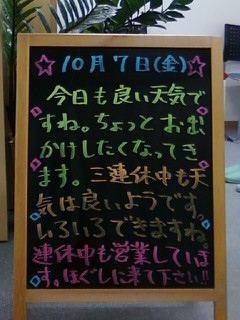 ☆10月7日(金)☆
今日も良い天気で
すね。ちょっとお出
かけしたくなってき
ます。三連休中も天
気は良いようです。
いろいろできますね。
連休中も営業していま
す。ほぐしに来て下さい!!